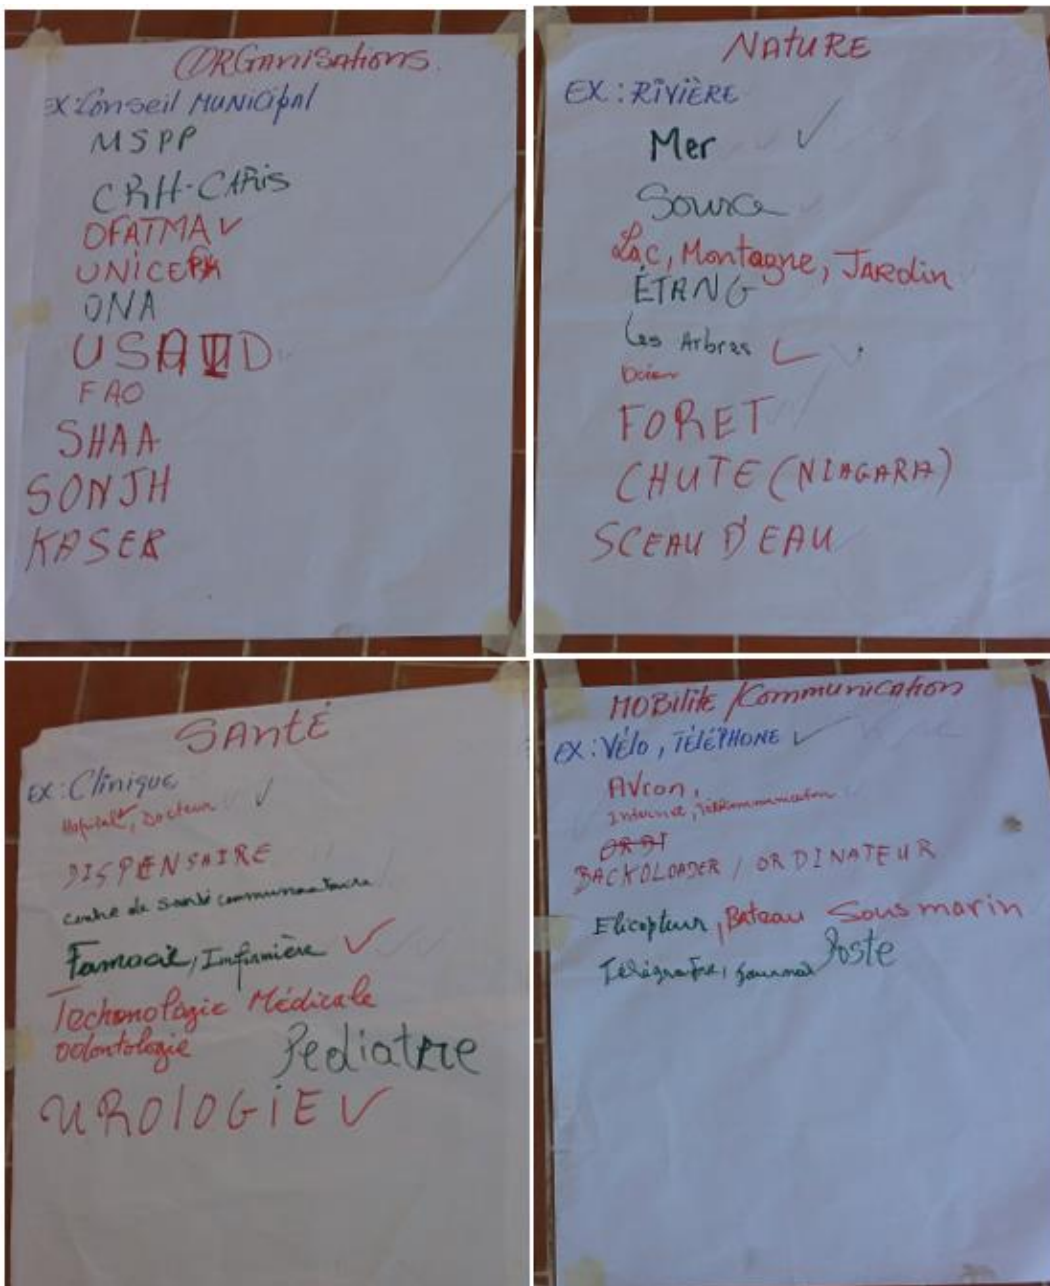 ORGANISATIONS.
EX: Conseil MUNICIPAL
MSPP
CRH-CARIS
OFATMA
UNICEF
ONA
USAID
FAO
SHAA
SONJH
KASER
NATURE
EX: RIVIÈRE
Mer
Source
Lac, Montagne, JARdin
ÉTANG
Les Arbres
FORET
CHUTE (NIAGARA)
SCEAU D'EAU
SANTÉ
EX: Clinique
Hopital, Docteur
DISPENSAIRE
Centre de santé communautaire
Famacie, Infirmière
Techonologie Médicale
odontologie
Pediatrie
UROlOGIE
MOBilité/Communication
EX: Vélo, TÉLÉPHONE
AVion,
Internet, Télécommunication
BACKOLOADER / ORDINATEUR
Elicopteur, Bateau Sous marin
Télégraphe, Journal Poste